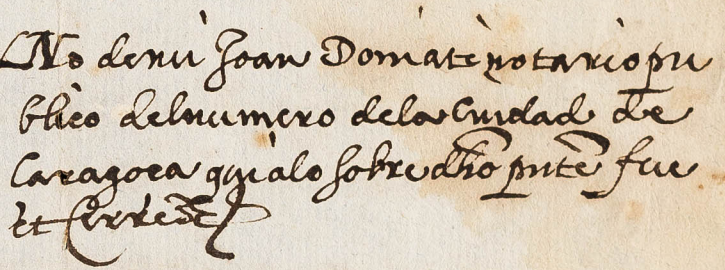 Sig No de mi Joan Doniate notario pu
blico del numero de la Ciudad de
Caragoca qui a lo sobre dho pnte fue
et Cerre